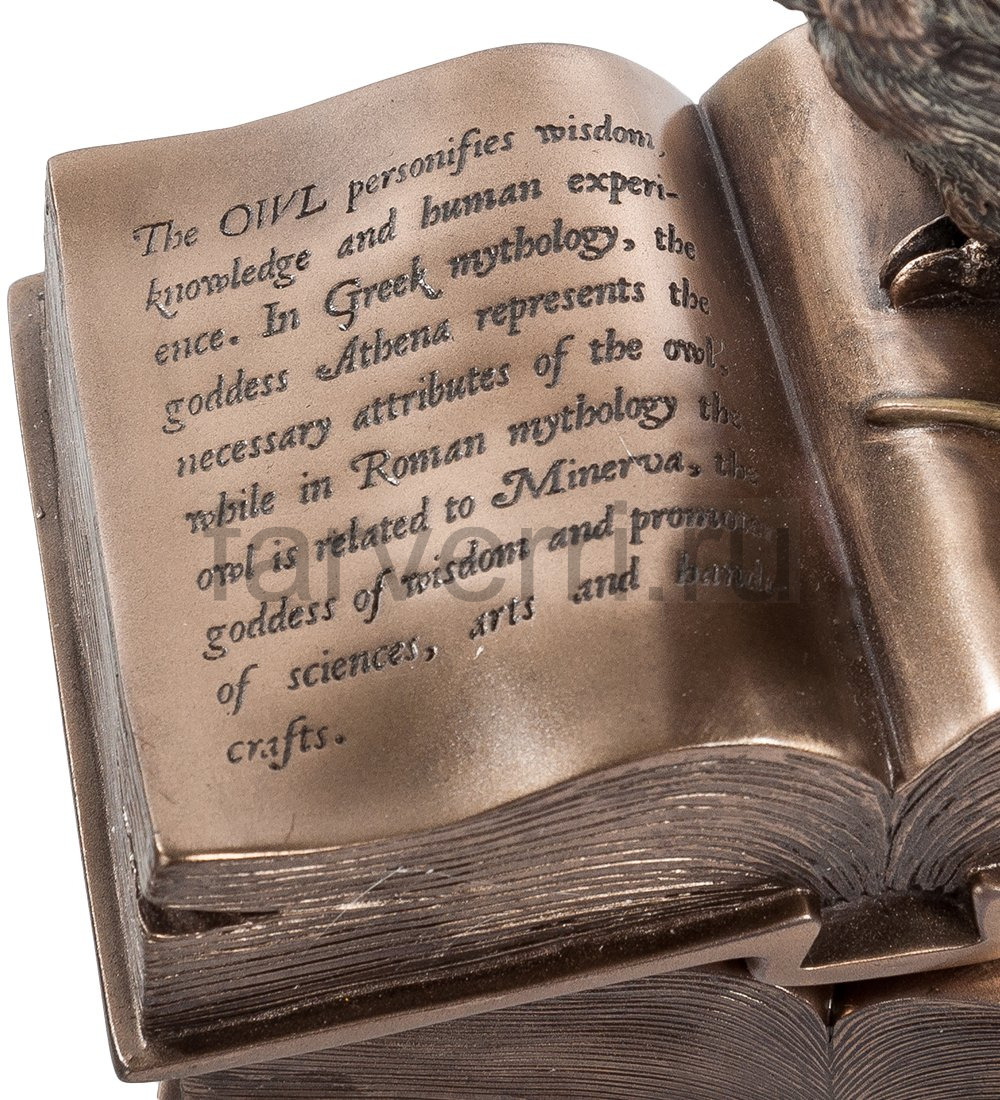 The OWL personifies wisdom,
knowledge and human experi-
ence. In Greek mythology, the
goddess Athena represents the
necessary attributes of the owl,
while in Roman mythology the
owl is related to Minerva, the
goddess of wisdom and promoter
of sciences, arts and handi
crafts.
farverri.ru